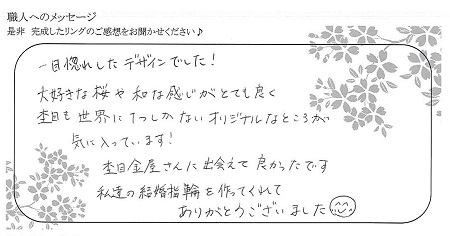 職人へのメッセージ
是非 完成したリングのご感想をお聞かせください♪
一目惚れしたデザインでした!
大好きな桜や和な感じがとても良く
杢目も世界に1つしかないオリジナルなところが
気に入っています!
杢目金屋さんに出会えて良かったです
私達の結婚指輪を作ってくれて
ありがとうございました